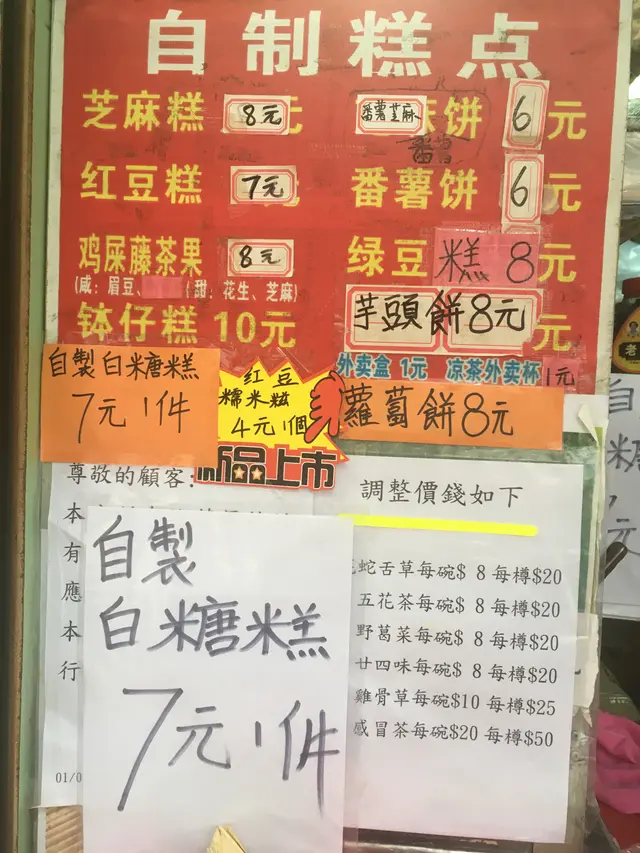 自制糕点
芝麻糕 8元
番薯芝麻饼 6元
番薯
红豆糕 7元
番薯饼 6元
鸡屎藤茶果 8元
(咸：眉豆、 (甜：花生、芝麻)
绿豆糕 8元
钵仔糕 10元
芋頭餅8元 元
外卖盒 1元 凉茶外卖杯1元
自製白糖糕
7元1件
红豆
糯米糍
4元1個
新品上市
蘿蔔餅8元
尊敬的顧客:
本
有
應
本
行
01/0
自製
白糖糕
7元1件
調整價錢如下
蛇舌草每碗$ 8 每樽$20
五花茶每碗$ 8 每樽$20
野葛菜每碗$ 8 每樽$20
廿四味每碗$ 8 每樽$20
雞骨草每碗$10 每樽$25
感冒茶每碗$20 每樽$50
自
糖
元